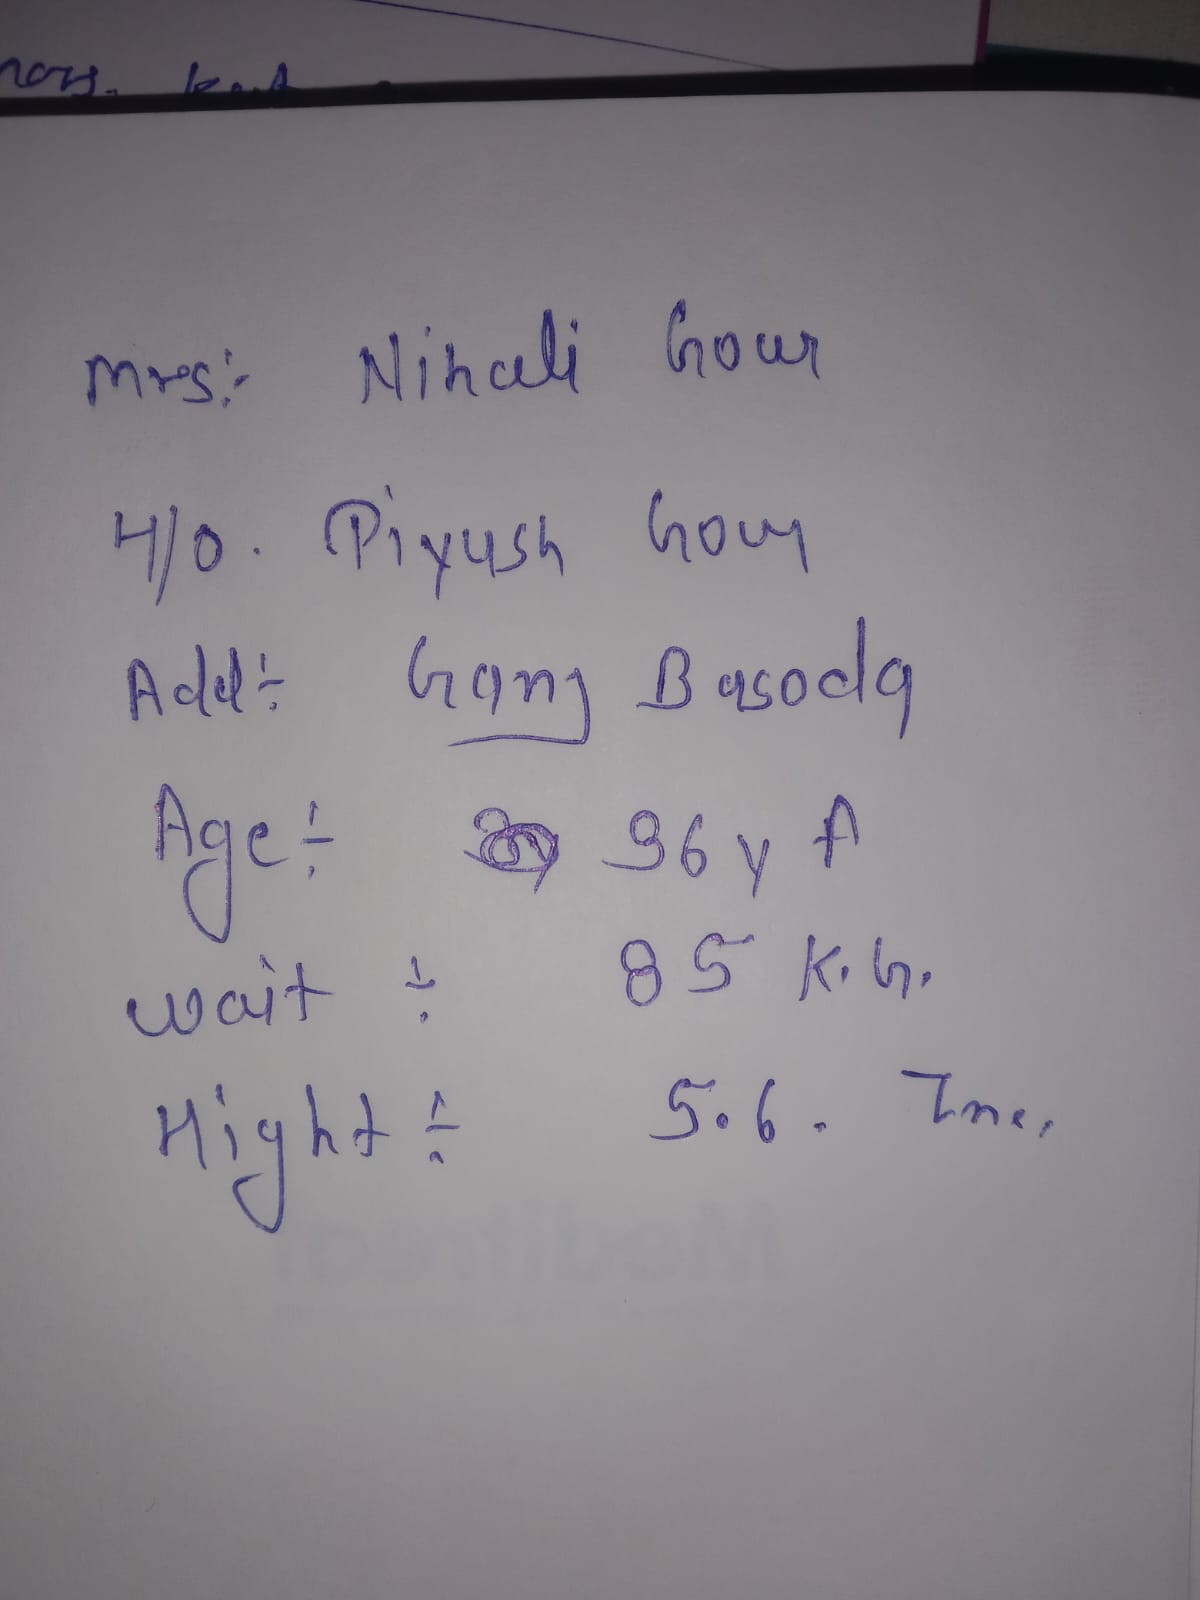 Mrs:- Nihali Gour
H/o. Piyush Gour
Add:- Ganj Basoda
Age:- 36 y
wait :- 85 K.G.
Hight :- 5.6.